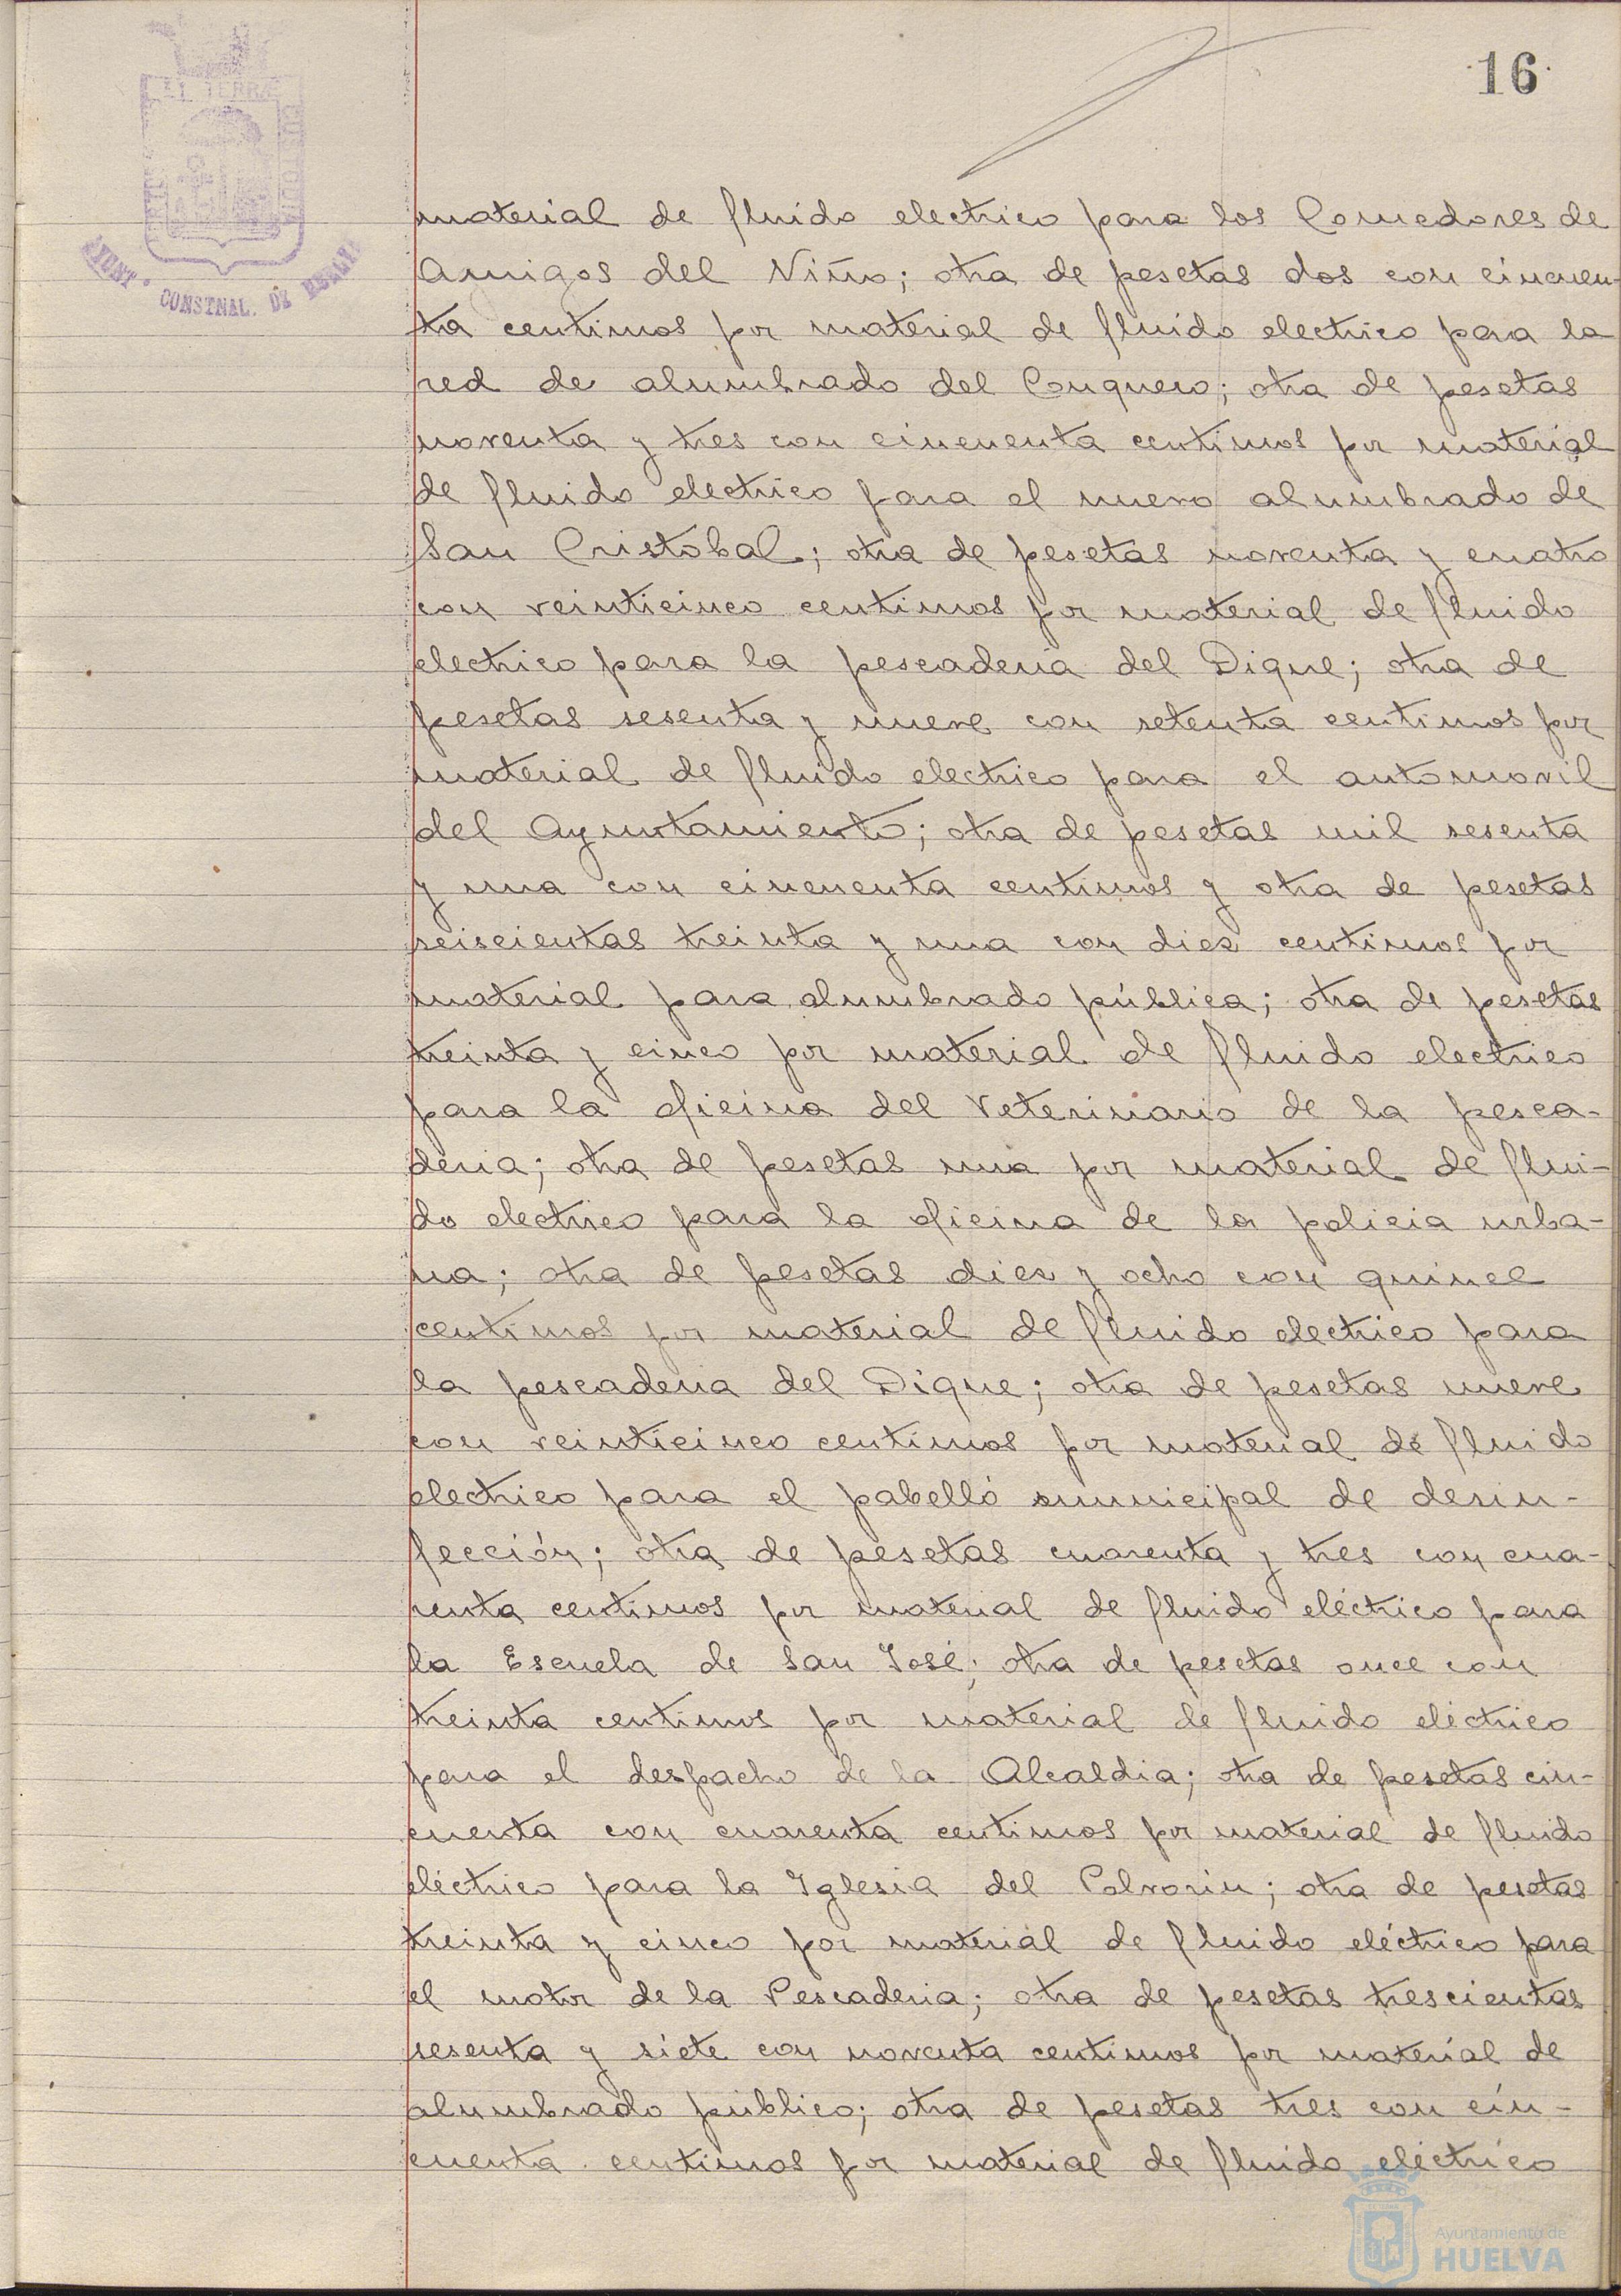 16
EL TERRÆ
CUSTODIA
CONSTNAL. DE HUELVA
material de fluido electrico para los Comedores de
Amigos del Niño; otra de pesetas dos con cincuen-
ta centimos por material de fluido electrico para la
red de alumbrado del Conquero; otra de pesetas
noventa y tres con cincuenta centimos por material
de fluido electrico para el nuevo alumbrado de
San Cristobal; otra de pesetas noventa y cuatro
con veinticinco centimos por material de fluido
electrico para la pescaderia del Dique; otra de
pesetas sesenta y nueve con setenta centimos por
material de fluido electrico para el automovil
del Ayuntamiento; otra de pesetas mil sesenta
y una con cincuenta centimos y otra de pesetas
seiscientas treinta y una con diez centimos por
material para alumbrado pública; otra de pesetas
treinta y cinco por material de fluido electrico
para la oficina del Veterinario de la pesca-
deria; otra de pesetas una por material de flui-
do electrico para la oficina de la policia urba-
na; otra de pesetas diez y ocho con quince
centimos por material de fluido electrico para
la pescaderia del Dique; otra de pesetas nueve
con veinticinco centimos por material de fluido
electrico para el pabelló municipal de desin-
fección; otra de pesetas cuarenta y tres con cua-
renta centimos por material de fluido eléctrico para
la Escuela de San José; otra de pesetas once con
treinta centimos por material de fluido eléctrico
para el despacho de la Alcaldia; otra de pesetas cin-
cuenta con cuarenta centimos por material de fluido
eléctrico para la Iglesia del Polvorin; otra de pesetas
treinta y cinco por material de fluido eléctrico para
el motor de la Pescaderia; otra de pesetas trescientas
sesenta y siete con noventa centimos por material de
alumbrado público; otra de pesetas tres con cin-
cuenta centimos por material de fluido eléctrico
Ayuntamiento de
HUELVA